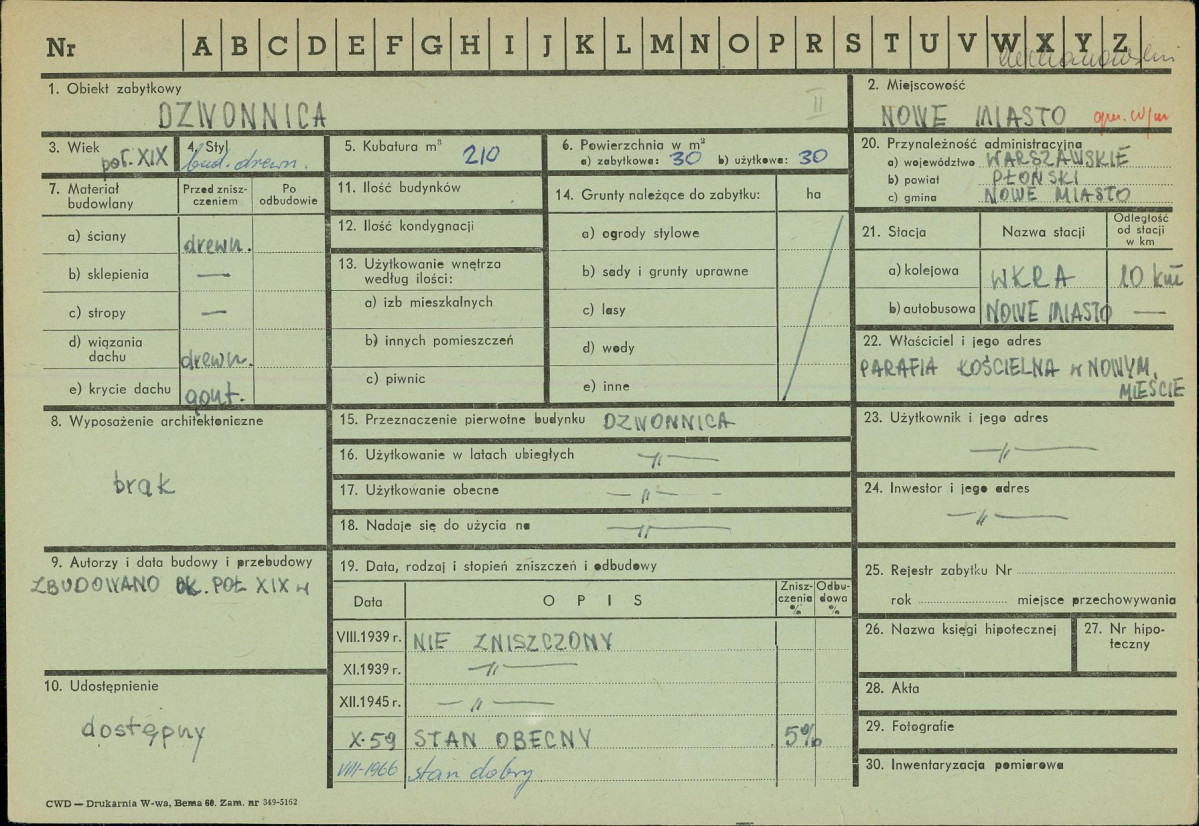 Nr A B C D E F G H I J K L M N O P R S T U V W X Y Z
1. Obiekt zabytkowy
DZWONNICA
II
2. Miejscowość
NOWE MIASTO gm. w/m
3. Wiek
poł. XIX
4. Styl
bud. drewn.
5. Kubatura m³ 210
6. Powierzchnia w m²
a) zabytkowa: 30 b) użytkowa: 30
20. Przynależność administracyjna
a) województwo WARSZAWSKIE
b) powiat PŁOŃSKI
c) gmina NOWE MIASTO
7. Materiał budowlany
Przed znisz-
czeniem
Po
odbudowie
a) ściany drewn.
b) sklepienia —
c) stropy —
d) wiązania
dachu drewn.
e) krycie dachu gont.
11. Ilość budynków
12. Ilość kondygnacji
13. Użytkowanie wnętrza
według ilości:
a) izb mieszkalnych
b) innych pomieszczeń
c) piwnic
14. Grunty należące do zabytku: ha
a) ogrody stylowe
b) sady i grunty uprawne
c) lasy
d) wody
e) inne
21. Stacja Nazwa stacji
Odległość
od stacji
w km
a) kolejowa WKRA 10 km
b) autobusowa NOWE MIASTO —
22. Właściciel i jego adres
PARAFIA KOŚCIELNA w NOWYM
MIEŚCIE
8. Wyposażenie architektoniczne
brak
15. Przeznaczenie pierwotne budynku DZWONNICA
16. Użytkowanie w latach ubiegłych —„—
17. Użytkowanie obecne —„—
18. Nadaje się do użycia na —„—
23. Użytkownik i jego adres
—„—
24. Inwestor i jego adres
—„—
9. Autorzy i data budowy i przebudowy
ZBUDOWANO OK. POŁ XIX w
10. Udostępnienie
dostępny
19. Data, rodzaj i stopień zniszczeń i odbudowy
Data OPIS
Znisz-
czenia
%
Odbu-
dowa
%
VIII.1939 r. NIE ZNISZCZONY
XI.1939 r. —„—
XII.1945 r. —„—
X-59 STAN OBECNY 5%
VIII-1966 stan dobry
25. Rejestr zabytku Nr
rok miejsce przechowywania
26. Nazwa księgi hipotecznej
27. Nr hipo-
teczny
28. Akta
29. Fotografie
30. Inwentaryzacja pomiarowa
CWD — Drukarnia W-wa, Bema 60. Zam. nr 349-5162